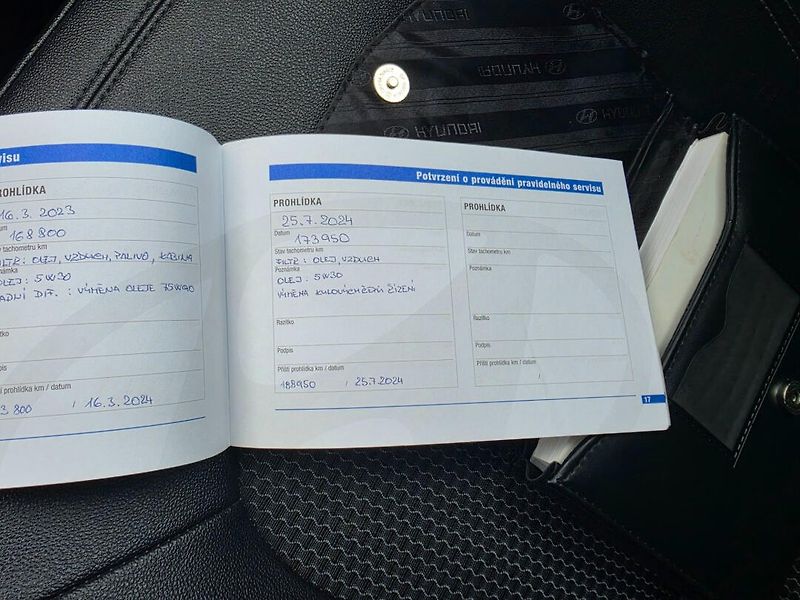 HYUNDAI
HYUNDAI
HYUNDAI
HYUNDAI
visu
ROHLÍDKA
16.3.2023
168 800
FILTR: OLEJ, VZDUCH, PALIVO, KABINA
OLEJ: 5W30
ZADNÍ DIF. : VÝMĚNA OLEJE 75W90
pis
ští prohlídka km / datum
3 800 / 16.3.2024
Potvrzení o provádění pravidelného servisu
PROHLÍDKA
25.7.2024
Datum
173950
Stav tachometru km
FILTR: OLEJ, VZDUCH
Poznámka
OLEJ: 5W30
VÝMĚNA KULOVÝCH ČEPŮ ŘÍZENÍ
Razítko
Podpis
Příští prohlídka km / datum
188950 / 25.7.2024
PROHLÍDKA
Datum
Stav tachometru km
Poznámka
Razítko
Podpis
Příští prohlídka km / datum
/
17